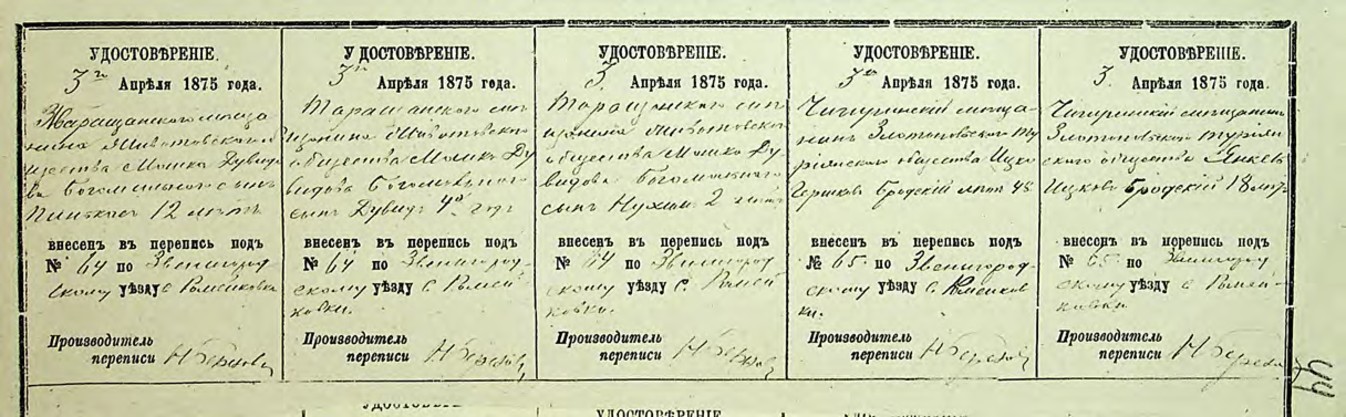 УДОСТОВѢРЕНІЕ.
3го Апрѣля 1875 года.
Таращанского мѣща
нина Животовского об
щества Мошка Дувидо
ва Богомольного сынъ
Пинькасъ 12 лѣтъ
внесенъ въ перепись подъ
№ 64 по Звенигород
скому уѣзду с Рымейковки
Производитель
переписи Н
УДОСТОВѢРЕНІЕ.
3го Апрѣля 1875 года.
Таращанского мѣ
щанина Животовского
общества Мошка Ду
видова Богомольного
сынъ Дувидъ 4 года
внесенъ въ перепись подъ
№ 64 по Звенигород
скому уѣзду с Рымей
ковки.
Производитель
переписи Н
УДОСТОВѢРЕНІЕ.
3. Апрѣля 1875 года.
Таращанского мѣ
щанина Животовского
общества Мошка Ду
видова Богомольного
сынъ Нухим 2 лѣтъ
внесенъ въ перепись подъ
№ 64 по Звенигород
скому уѣзду с. Рымей
ковки.
Производитель
переписи Н
УДОСТОВѢРЕНІЕ.
3го Апрѣля 1875 года.
Чигиринскій мѣща-
нинъ Златопольского Ту
рійского общества Ицко
Гершковъ Бродскій лѣтъ 48
внесенъ въ перепись подъ
№ 65. по Звенигород-
скому уѣзду с. Рымейков
ки.
Производитель
переписи Н
УДОСТОВѢРЕНІЕ.
3. Апрѣля 1875 года.
Чигиринскій мѣщанинъ
Златопольского Турій
ского общества Янкель
Ицковъ Бродскій 18 лѣтъ
внесенъ въ перепись подъ
№ 65 по Звенигород
скому уѣзду с Рымей-
ковки
Производитель
переписи Н
44
УДОСТОВѢРЕНІЕ